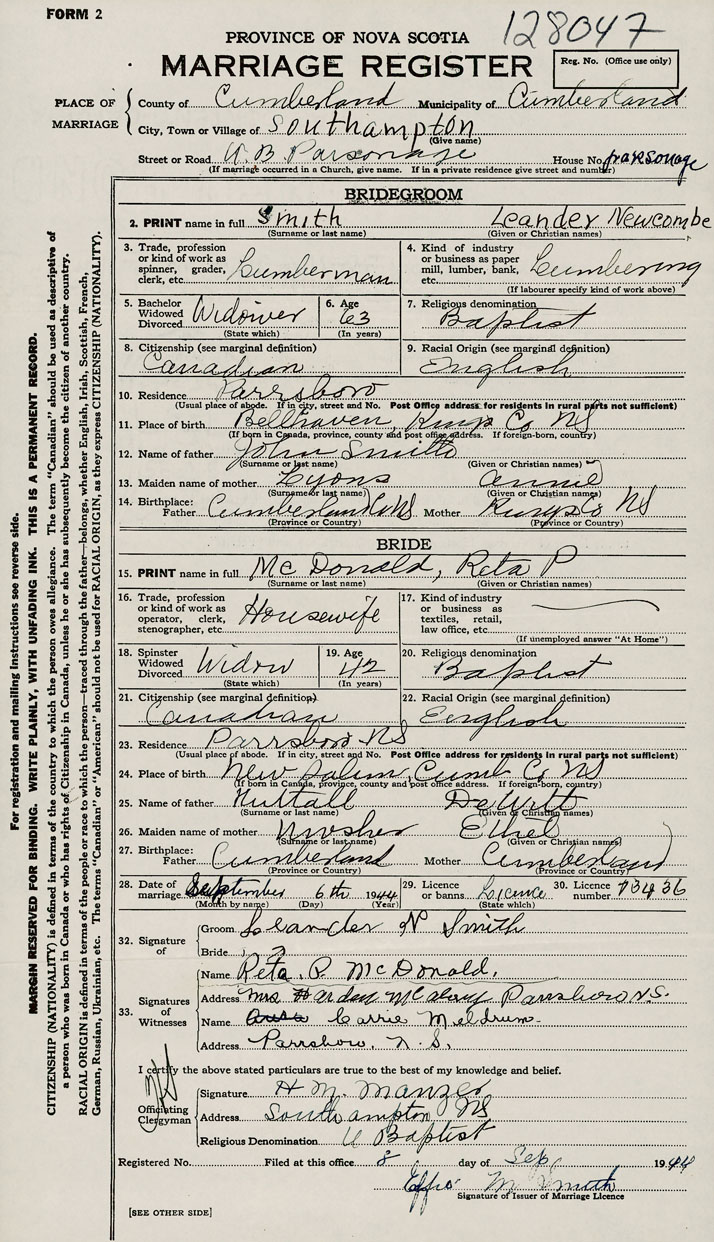 FORM 2
128047
PROVINCE OF NOVA SCOTIA
MARRIAGE REGISTER
Reg. No. (Office use only)
PLACE OF MARRIAGE
County of Cumberland Municipality of Cumberland
City, Town or Village of Southampton
(Give name)
Street or Road U. B. Parsonage House No. parsonage
(If marriage occurred in a Church, give name. If in a private residence give street and number)
BRIDEGROOM
2. PRINT name in full Smith Leander Newcombe
(Surname or last name) (Given or Christian names)
3. Trade, profession or kind of work as spinner, grader, clerk, etc. Lumberman
4. Kind of industry or business as paper mill, lumber, bank, etc. Lumbering
(If labourer specify kind of work above)
5. Bachelor Widowed Divorced Widower
(State which)
6. Age 63
(In years)
7. Religious denomination Baptist
8. Citizenship (see marginal definition) Canadian
9. Racial Origin (see marginal definition) English
10. Residence Parrsboro
(Usual place of abode. If in city, street and No. Post Office address for residents in rural parts not sufficient)
11. Place of birth Bellhaven, Kings Co NS
(If born in Canada, province, county and post office address. If foreign-born, country)
12. Name of father John Smith
(Surname or last name) (Given or Christian names)
13. Maiden name of mother Lyons Annie
(Surname or last name) (Given or Christian names)
14. Birthplace: Father Cumberland Co NS Mother Kings Co NS
(Province or Country) (Province or Country)
BRIDE
15. PRINT name in full Mc Donald, Reta P
(Surname or last name) (Given or Christian names)
16. Trade, profession or kind of work as operator, clerk, stenographer, etc. Housewife
17. Kind of industry or business as textiles, retail, law office, etc.
(If unemployed answer "At Home")
18. Spinster Widowed Divorced Widow
(State which)
19. Age 42
(In years)
20. Religious denomination Baptist
21. Citizenship (see marginal definition) Canadian
22. Racial Origin (see marginal definition) English
23. Residence Parrsboro NS
(Usual place of abode. If in city, street and No. Post Office address for residents in rural parts not sufficient)
24. Place of birth New Salem, Cumb Co NS
(If born in Canada, province, county and post office address. If foreign-born, country)
25. Name of father Nuttall DeWitt
(Surname or last name) (Given or Christian names)
26. Maiden name of mother Ethel
(Surname or last name) (Given or Christian names)
27. Birthplace: Father Cumberland Mother Cumberland
(Province or Country) (Province or Country)
28. Date of marriage September 6th 1944
(Month by name) (Day) (Year)
29. Licence or banns Licence
(State which)
30. Licence number 73436
32. Signature of
Groom Leander N Smith
Bride
33. Signatures of Witnesses
Name Reta. P McDonald.
Address Mrs Parrsboro N.S.
Name Carrie Meldrum
Address Parrsboro, N. S.
I certify the above stated particulars are true to the best of my knowledge and belief.
Officiating Clergyman
Signature H M. Manzer
Address Southampton NS
Religious Denomination U Baptist
Registered No. Filed at this office 8 day of Sep, 1944
Effie M Smith
Signature of Issuer of Marriage Licence
[SEE OTHER SIDE]
For registration and mailing instructions see reverse side.
MARGIN RESERVED FOR BINDING. WRITE PLAINLY, WITH UNFADING INK. THIS IS A PERMANENT RECORD.
CITIZENSHIP (NATIONALITY) is defined in terms of the country to which the person owes allegiance. The term "Canadian" should be used as descriptive of
a person who was born in Canada or who has rights of Citizenship in Canada, unless he or she has subsequently become the citizen of another country.
RACIAL ORIGIN is defined in terms of the people or race to which the person—traced through the father—belongs, whether English, Irish, Scottish, French,
German, Russian, Ukrainian, etc. The terms "Canadian" or "American" should not be used for RACIAL ORIGIN, as they express CITIZENSHIP (NATIONALITY).